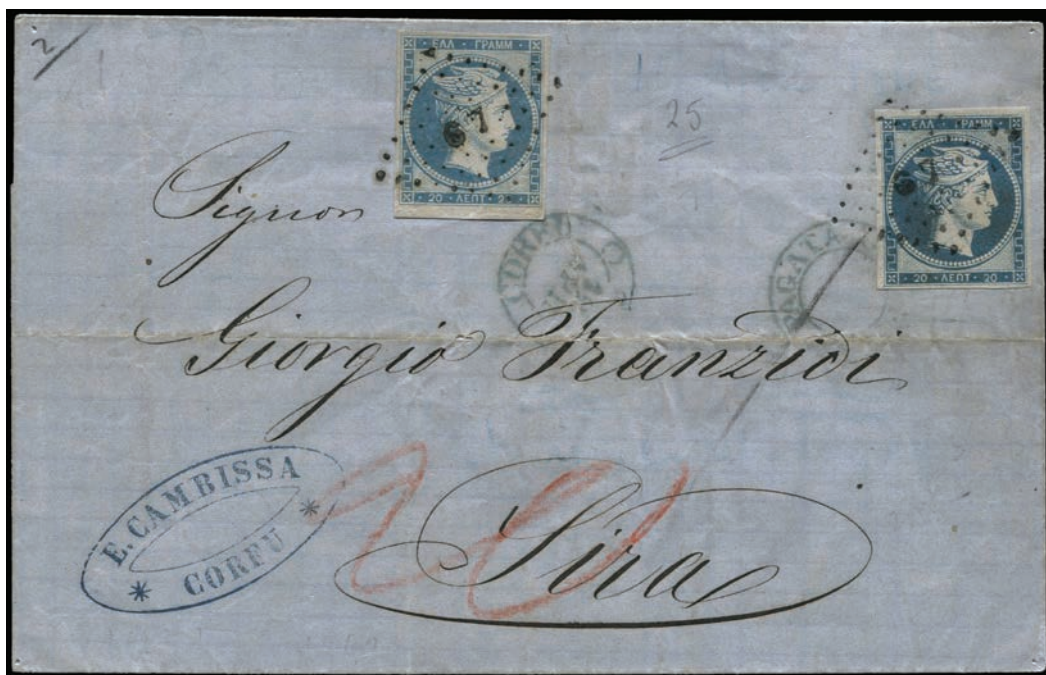 2
ΕΛΛ · ΓΡΑΜΜ
67
20 · ΛΕΠΤ · 20
25
ΕΛΛ · ΓΡΑΜΜ
67
20 · ΛΕΠΤ · 20
Signor
Giorgio Franzidi
Sira
20
E. CAMBISSA
* CORFU *